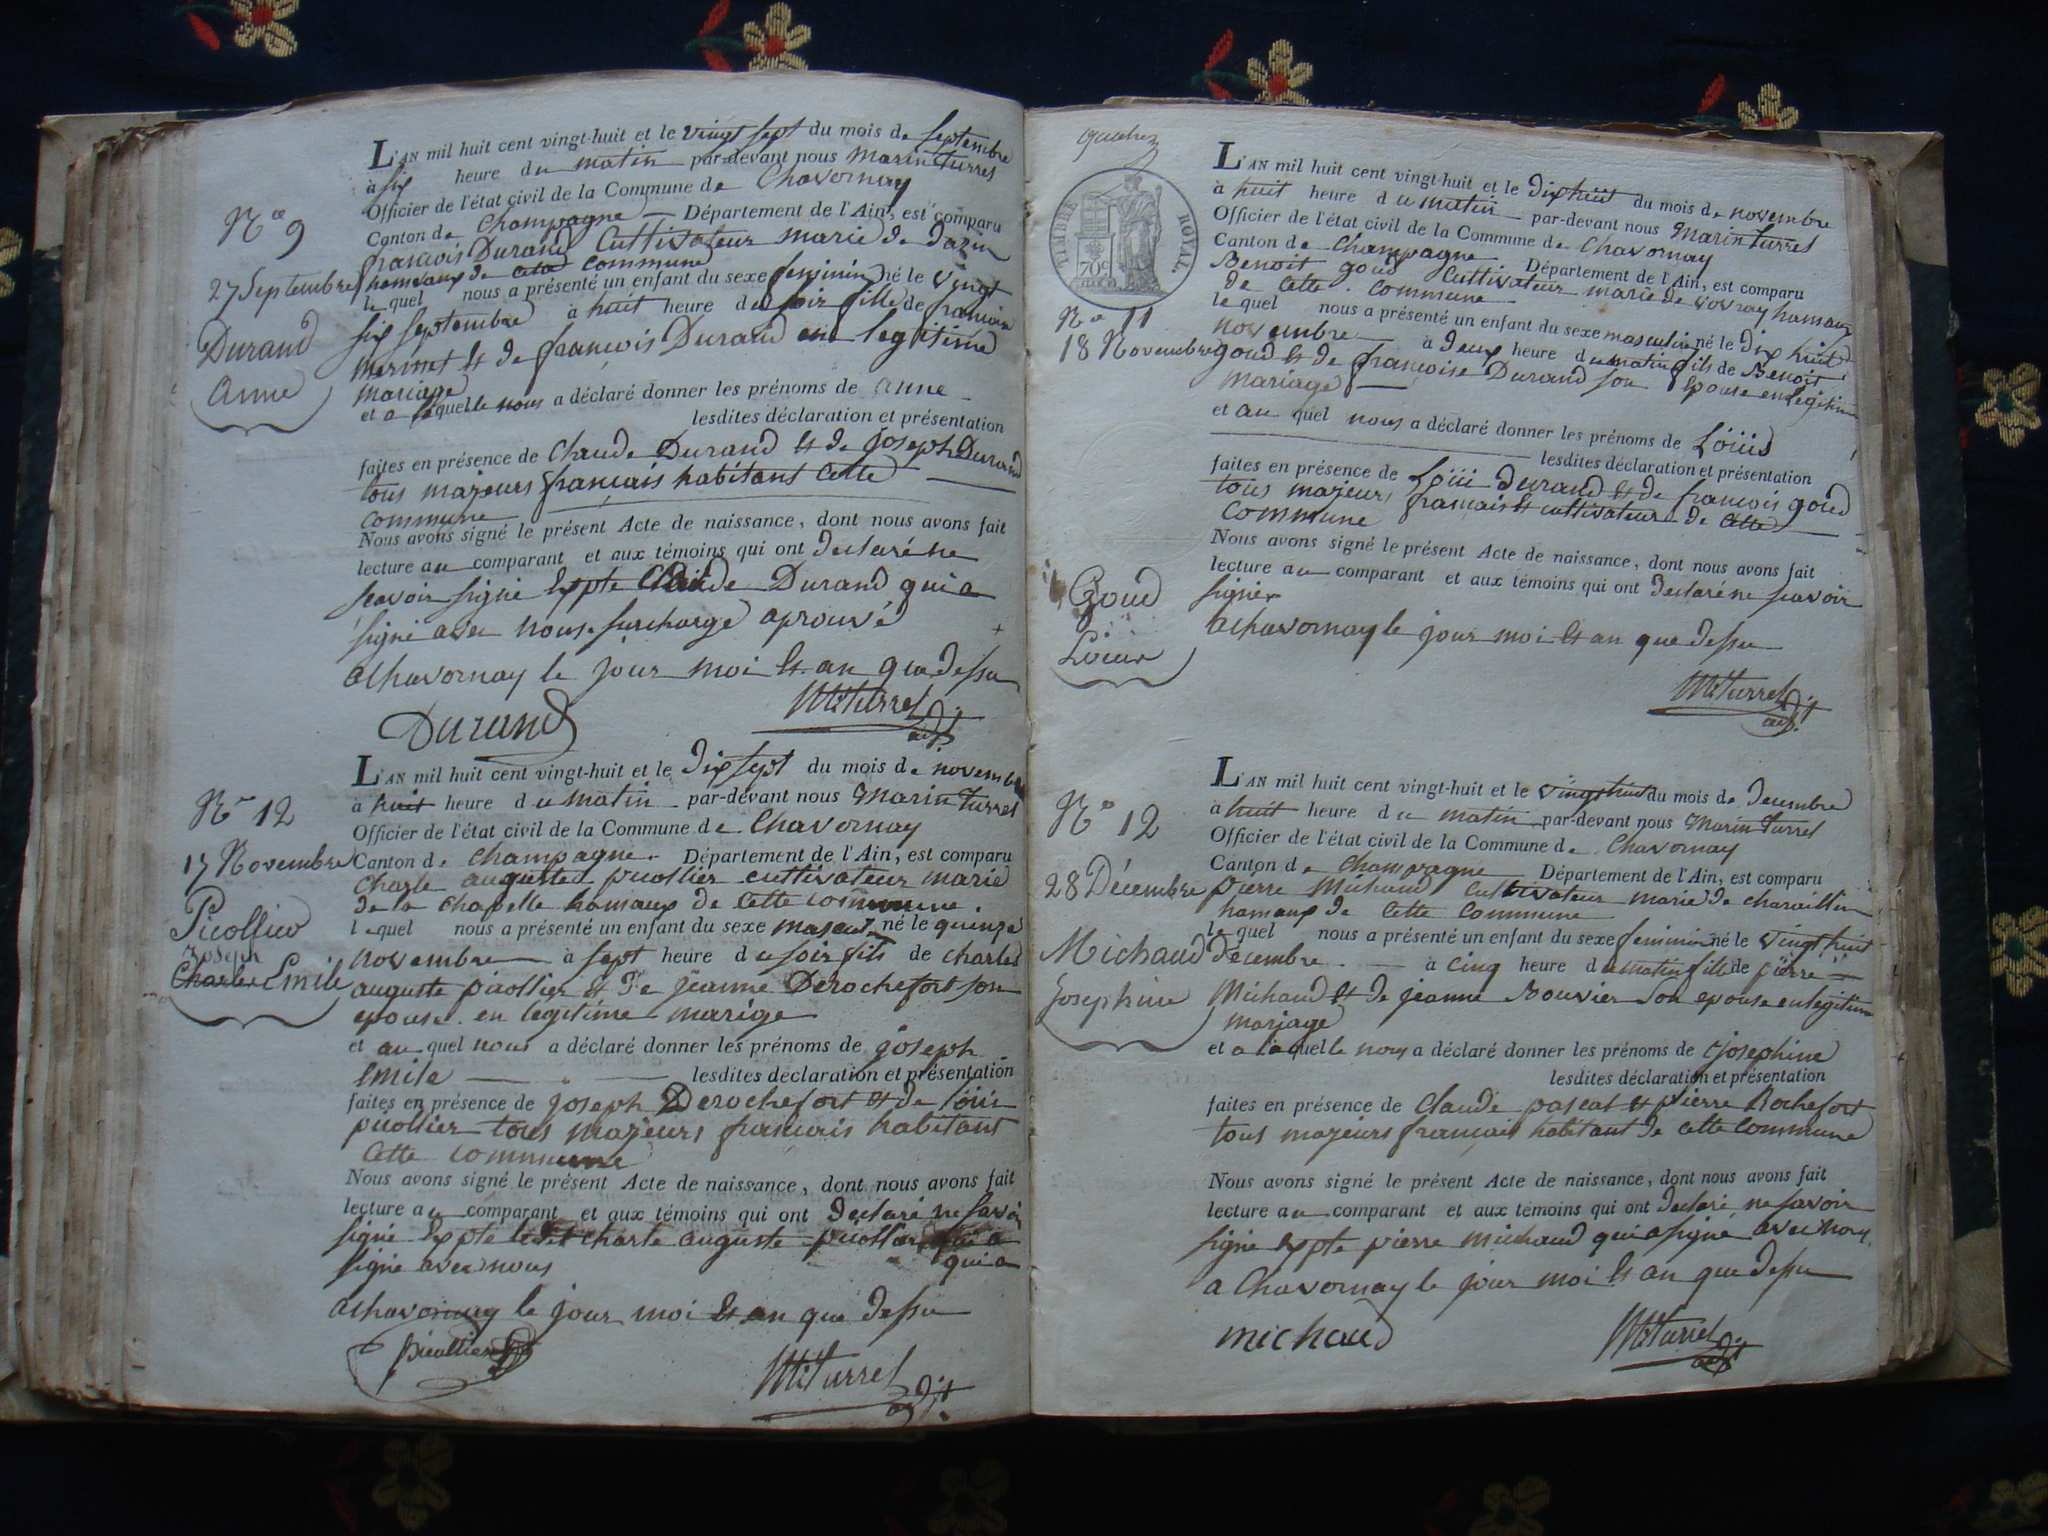 L'AN mil huit cent vingt-huit et le vingt sept du mois de septembre
à six heure du matin par-devant nous marin turrel
Officier de l'état civil de la Commune de Chavornay
Canton de Champagne Département de l'Ain, est comparu
françois Durand Cultivateur marie de
hamaux de cette commune
lequel nous a présenté un enfant du sexe feminin né le vingt
six septembre à huit heure du soir fille de françois
mermet et de françois Durand en legitime
mariage
et a laquelle nous a déclaré donner les prénoms de anne
lesdites déclaration et présentation
faites en présence de Claude Durand et de joseph Durand
tous majeurs français habitant Cette
commune
Nous avons signé le présent Acte de naissance, dont nous avons fait
lecture au comparant et aux témoins qui ont declaré ne
scavoir signé expte Claude Durand qui a
signé avec nous surcharge aprouvé
a Chavornay le jour moi et an que dessu
Durand
Mtturrel
adjt
N° 9
27 Septembre
Durand
Anne
L'AN mil huit cent vingt-huit et le dix sept du mois de novembre
à huit heure du matin par-devant nous marin turrel
Officier de l'état civil de la Commune de Chavornay
Canton de champagne Département de l'Ain, est comparu
Charle auguste picollier cultivateur marie
de la chapelle hamaux de cette commune
lequel nous a présenté un enfant du sexe mascul né le quinze
novembre à sept heure du soir fils de charles
auguste picollier et de jeanne Derochefort son
epouse en legitime marige
et au quel nous a déclaré donner les prénoms de joseph
emile lesdites déclaration et présentation
faites en présence de joseph Derochefort et de loüis
picollier tous majeurs français habitant
Cette commune
Nous avons signé le présent Acte de naissance, dont nous avons fait
lecture au comparant et aux témoins qui ont declaré ne savoir
signé expte charle auguste picollier qui a
signé avec nous
a chavornay le jour moi et an que dessu
picollier
Mtturrel
adjt
N° 12
17 Novembre
Picollier
Joseph
Charles Emile
TIMBRE ROYAL
70c
L'AN mil huit cent vingt-huit et le dix huit du mois de novembre
à huit heure du matin par-devant nous marin turrel
Officier de l'état civil de la Commune de Chavornay
Canton de Champagne Département de l'Ain, est comparu
Benoit goud Cultivateur marie de vovray hamaux
de cette commune
lequel nous a présenté un enfant du sexe masculin né le dix huit
novembre à deux heure du matin fils de Benoit
goud et de françoise Durand son epouse en legitime
mariage
et au quel nous a déclaré donner les prénoms de Loüis
lesdites déclaration et présentation
faites en présence de Loüi Durand et de françois goud
tous majeurs français et cultivateur de cette
commune
Nous avons signé le présent Acte de naissance, dont nous avons fait
lecture au comparant et aux témoins qui ont declaré ne scavoir
signer
a chavornay le jour moi et an que dessu
Mtturrel
adjt
N° 11
18 Novembre
Goud
Loüis
L'AN mil huit cent vingt-huit et le vingt huit du mois de decembre
à huit heure du matin par-devant nous marin turrel
Officier de l'état civil de la Commune de Chavornay
Canton de champagne Département de l'Ain, est comparu
pierre Michaud cultivateur marie de charaillin
hamaux de cette commune
lequel nous a présenté un enfant du sexe feminin né le vingt huit
decembre à cinq heure du matin fille de pierre
Michaud et de jeanne Bouvier son epouse en legitime
mariage
et a laquelle nous a déclaré donner les prénoms de josephine
lesdites déclaration et présentation
faites en présence de claude pascal et pierre Rochefort
tous majeurs français habitant de cette commune
Nous avons signé le présent Acte de naissance, dont nous avons fait
lecture au comparant et aux témoins qui ont declaré ne savoir
signé expte pierre michaud qui a signé avec nous
a Chavornay le jour moi et an que dessu
michaud
Mtturrel
adjt
N° 12
28 Décembre
Michaud
Josephine